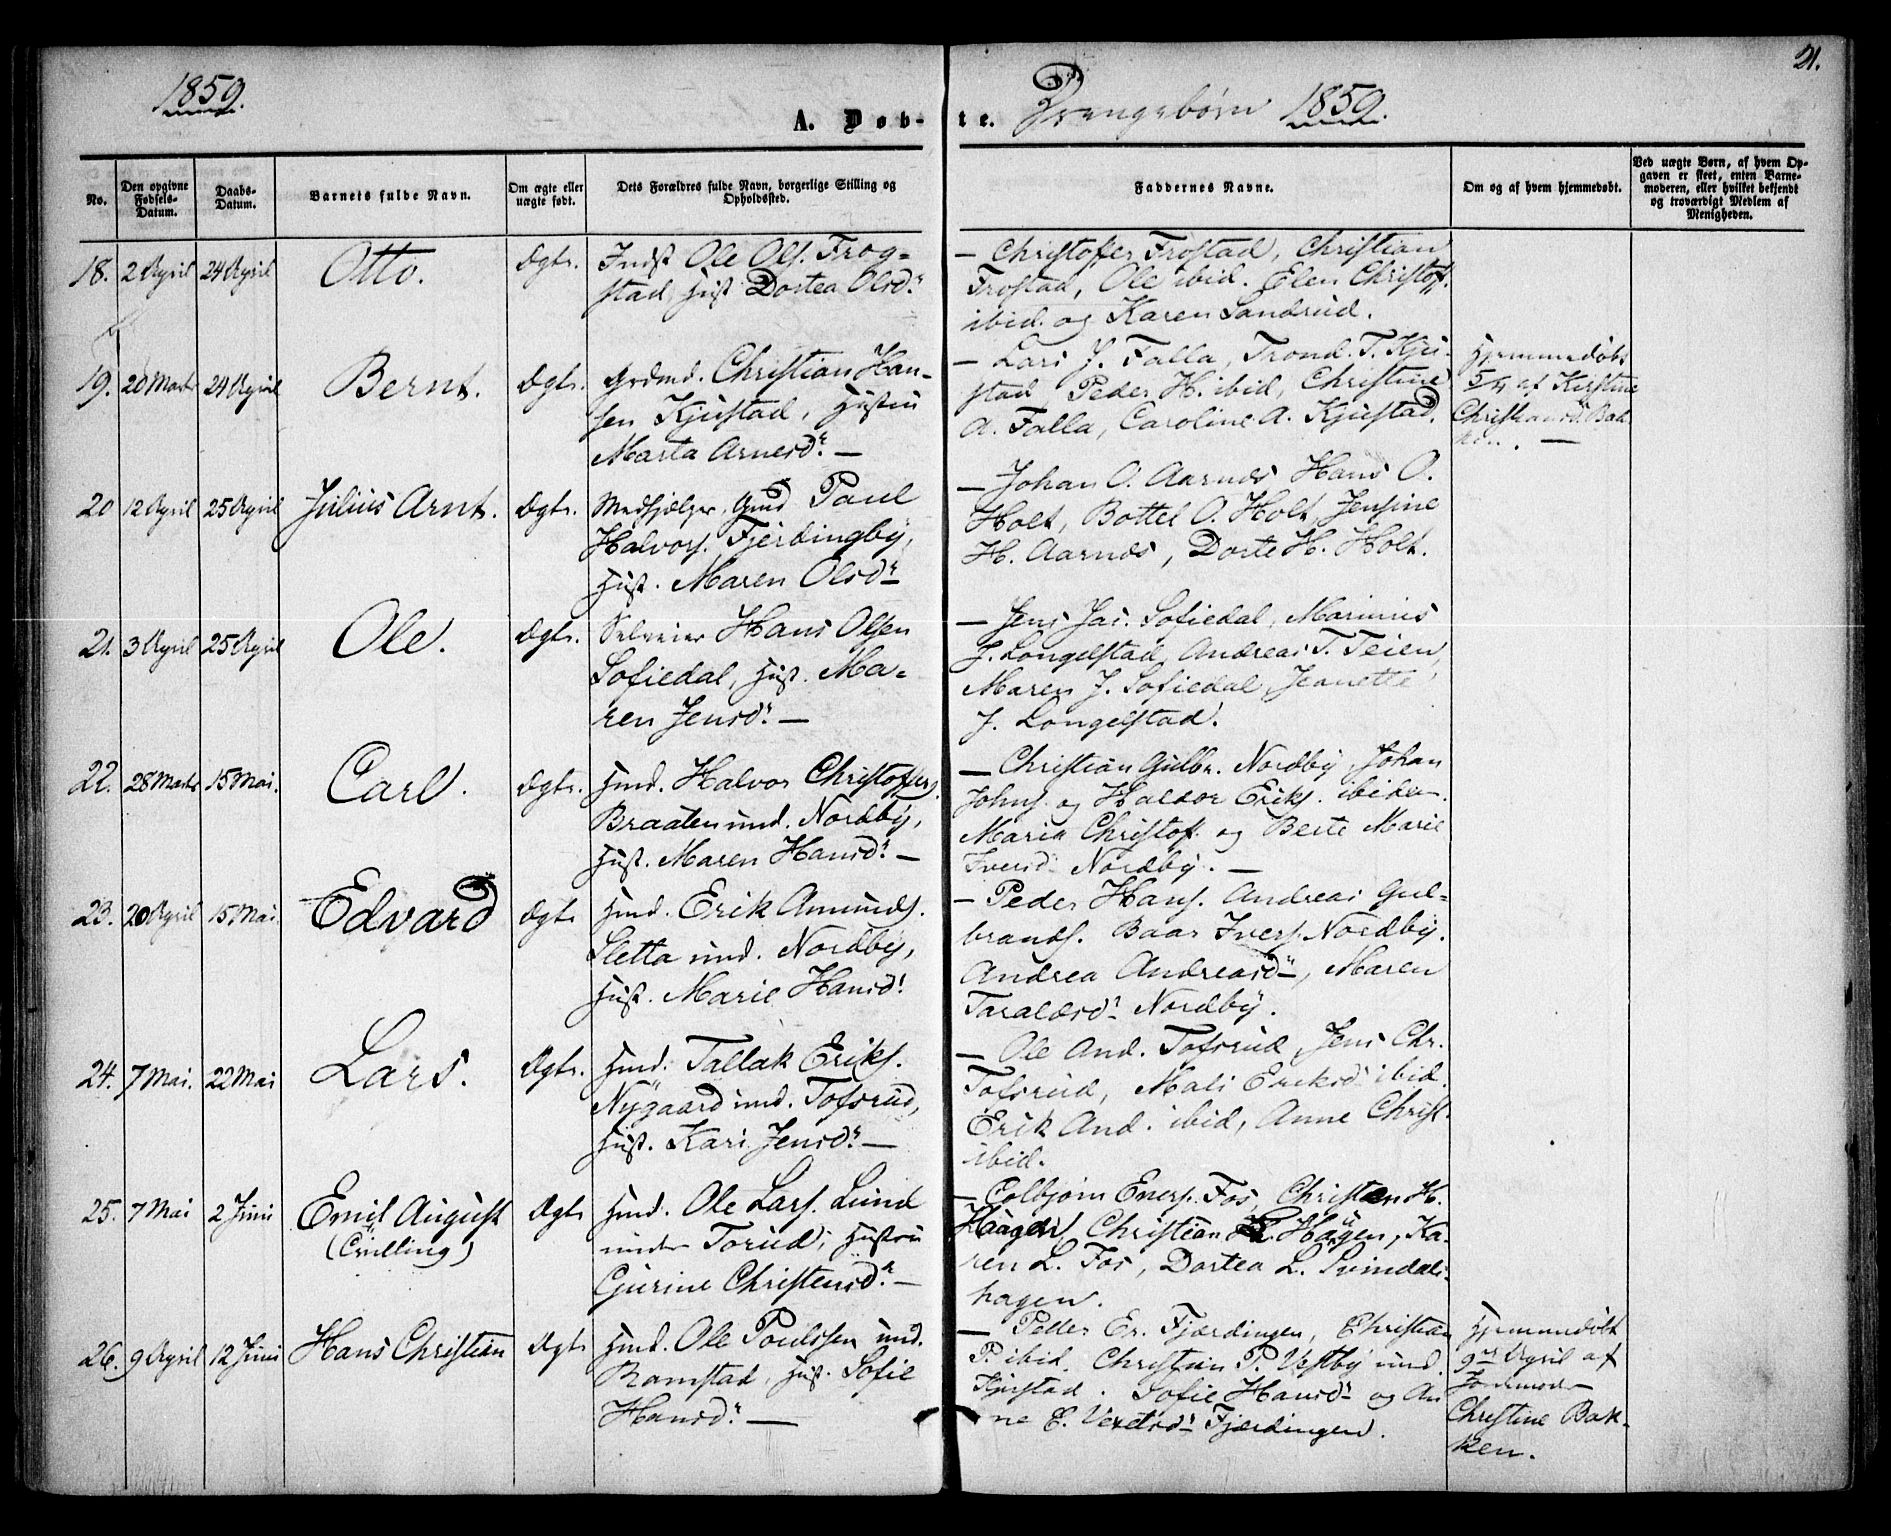 21.
1859.
A. Døb-
te.
Drengebørn 1859.
No.
Den opgivne
Fødsels-
Datum.
Daabs-
Datum.
Barnets fulde Navn.
Om ægte eller
uægte født.
Dets Forældres fulde Navn, borgerlige Stilling og
Opholdssted.
Faddernes Navne.
Om og af hvem hjemmedøbt.
Ved uægte Børn, af hvem Op-
gaven er skeet, enten Barne-
moderen, eller hvilket bekjendt
og troværdigt Medlem af
Menigheden.
18. 2 April 24 April Otto. Ægte.
Indst Ole Ols. Frog-
stad Hust Dortea Olsdr
— Christoffer Frostad, Christian
Frostad, Ole ibid. Elen Christof.
ibid. og Karen Sandrud.
19. 20 Marts 24 April Bernt. Ægte.
Grdmd. Christian Han-
sen Kjustad, Hustru
Marta Arnesdr —
— Lars J. Falla, Trond. T. Kju-
stad, Peder H. ibid, Christine
A. Falla, Caroline A. Kjustad.
Hjemmedøbt
5/4 af Kirstine
Christiansd. Bak
20 12 April 25 April Julius Arnt. Ægte.
Medhjælger, Gmd Paul
Halvors. Fjerdingby,
Hust. Maren Olsdr
— Johan O. Aarnæs Hans O.
Holt, Bottel O. Holt, Jensine
H. Aarnæs, Dorte H. Holt.
21. 3 April 25 April Ole. Ægte.
Selveier Hans Olsen
Sofiedal, Hust. Ma-
ren Jensdr —
— Jens Jac. Sofiedal, Marinius
J. Longelstad, Andreas T. Teien,
Maren J. Sofiedal, Jeanette
J. Longelstad.
22. 28 Marts 15 Mai. Carl. Ægte.
Hmd. Halvor Christoffers.
Braaten und. Nordby,
Hust. Maren Hansdr —
— Christian Gulbr. Nordby, Johan
Johns. og Haldor Eriks. ibidem.
Maria Christof. og Berte Marie
Iversd Nordby. —
23. 20 April 15 Mai. Edvard Ægte
Hmd. Erik Amunds.
Sletta und. Nordby,
Hust. Marie Hansdr
— Peder Hans. Andreas Gul-
brands. Baar Ivers. Nordby.
Andrea Andreasdr, Maren
Taraldsdr Nordby.
24. 7 Mai. 22 Mai Lars. Ægte.
Hmd. Tallak Eriks.
Nygaard und. Tofsrud,
Hust. Kari Jensdr —
— Ole And. Tofsrud, Jens Chr.
Tofsrud, Mali Eriksd ibid.
Erik And. ibid, Anne Christ.
ibid.
25. 7 Mai 2 Juni Emil August
(Tvilling) Ægte
Hmd. Ole Lars. Lund
under Torud, Hustru
Gjurine Christensdr —
— Colbjørn Eners. Fos, Christen H.
Haagen, Christian Haagen, Ka-
ren L. Fos, Dortea L. Svindals-
hagen.
26. 9 April 12 Juni Hans Christian Ægte
Hmd. Ole Poulssen und.
Ramstad, Hust. Sofie
Hansdr —
— Peder Er. Fjærdingen, Christian
P. ibid. Christian P. Vestby und
Kjustad. Sofie Hansdr og An
ne E. Fjærdingen.
Hjemmedøbt
9de April af
Jordemoder
Christine Bak-
ken.